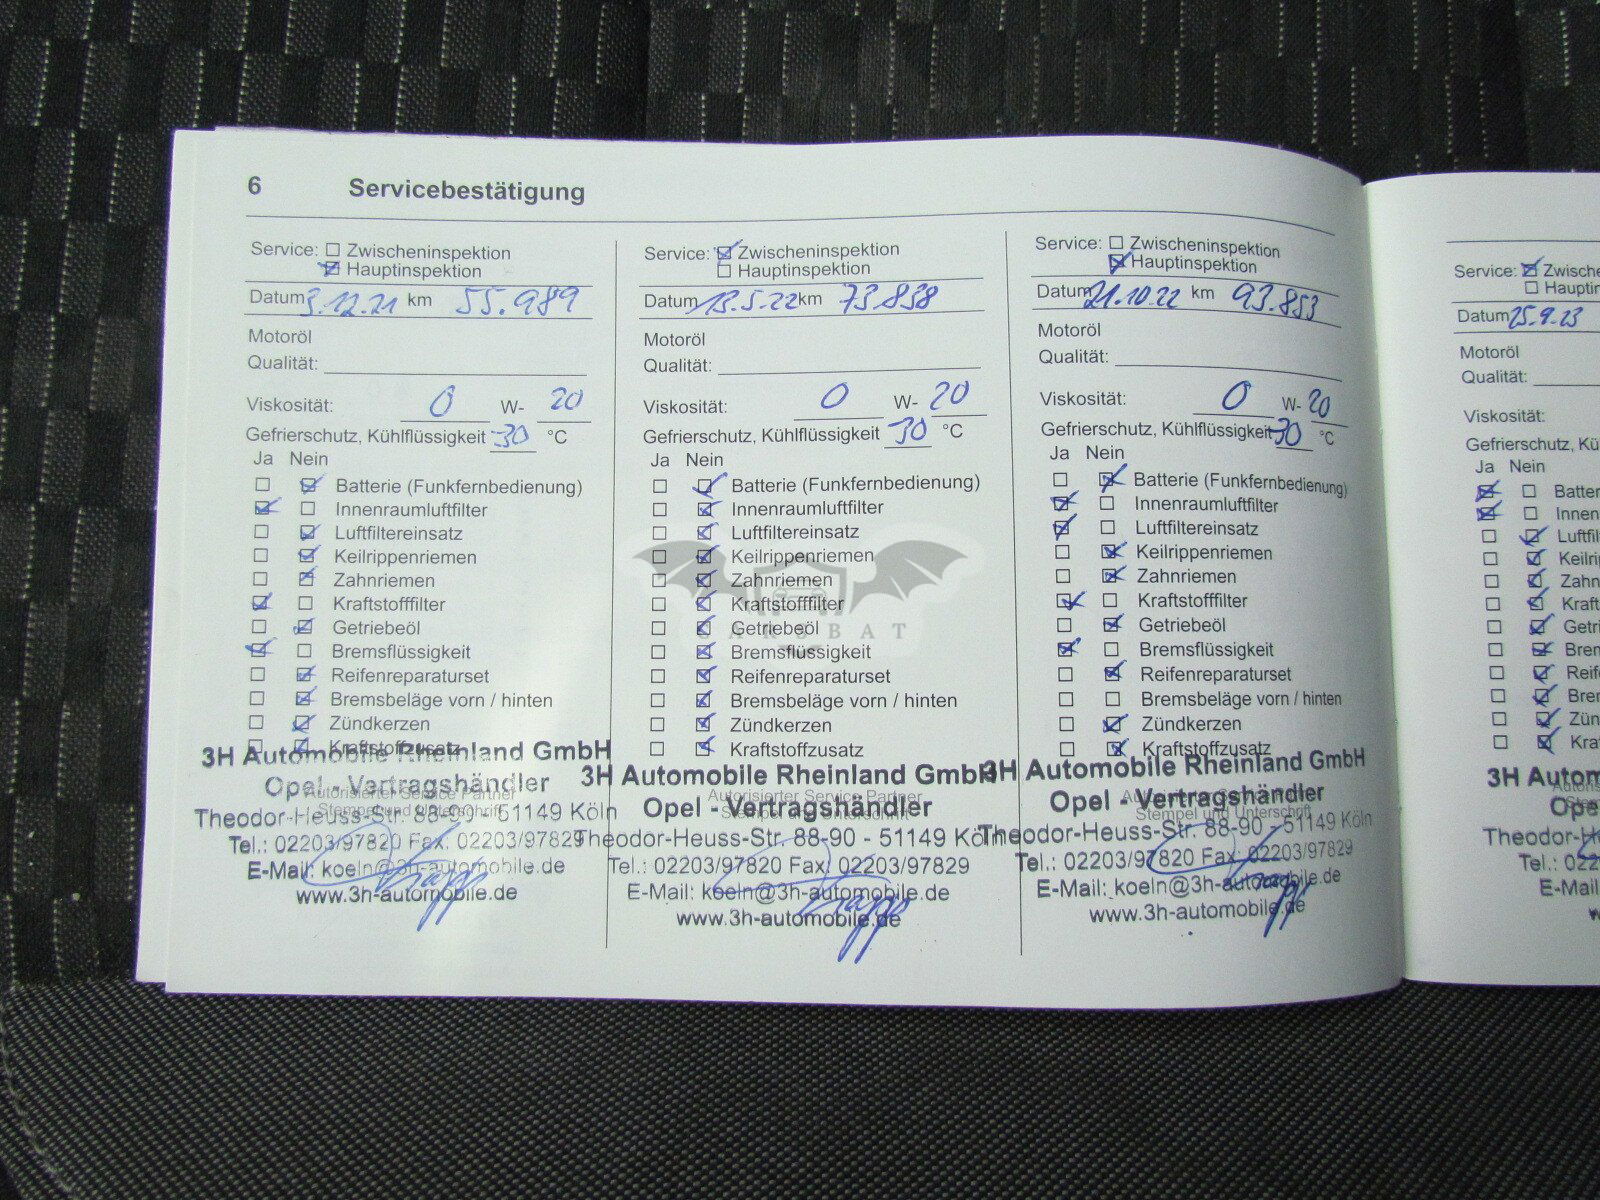 6 Servicebestätigung
Service: Zwischeninspektion
Hauptinspektion
Datum 3.12.21 km 55.989
Motoröl
Qualität:
Viskosität: 0 W- 20
Gefrierschutz, Kühlflüssigkeit -30 °C
Ja Nein
Batterie (Funkfernbedienung)
Innenraumluftfilter
Luftfiltereinsatz
Keilrippenriemen
Zahnriemen
Kraftstofffilter
Getriebeöl
Bremsflüssigkeit
Reifenreparaturset
Bremsbeläge vorn / hinten
Zündkerzen
Kraftstoffzusatz
3H Automobile Rheinland GmbH
Opel - Vertragshändler
Autorisierter Service Partner
Stempel und Unterschrift
Theodor-Heuss-Str. 88-90 - 51149 Köln
Tel.: 02203/97820 Fax: 02203/97829
E-Mail: koeln@3h-automobile.de
www.3h-automobile.de
Service: Zwischeninspektion
Hauptinspektion
Datum 13.5.22 km 73.838
Motoröl
Qualität:
Viskosität: 0 W- 20
Gefrierschutz, Kühlflüssigkeit -30 °C
Ja Nein
Batterie (Funkfernbedienung)
Innenraumluftfilter
Luftfiltereinsatz
Keilrippenriemen
Zahnriemen
Kraftstofffilter
Getriebeöl
CARSBAT
Bremsflüssigkeit
Reifenreparaturset
Bremsbeläge vorn / hinten
Zündkerzen
Kraftstoffzusatz
3H Automobile Rheinland GmbH
Autorisierter Service Partner
Opel - Vertragshändler
Stempel und Unterschrift
Theodor-Heuss-Str. 88-90 - 51149 Köln
Tel.: 02203/97820 Fax: 02203/97829
E-Mail: koeln@3h-automobile.de
www.3h-automobile.de
Service: Zwischeninspektion
Hauptinspektion
Datum 21.10.22 km 93.853
Motoröl
Qualität:
Viskosität: 0 W- 20
Gefrierschutz, Kühlflüssigkeit -30 °C
Ja Nein
Batterie (Funkfernbedienung)
Innenraumluftfilter
Luftfiltereinsatz
Keilrippenriemen
Zahnriemen
Kraftstofffilter
Getriebeöl
Bremsflüssigkeit
Reifenreparaturset
Bremsbeläge vorn / hinten
Zündkerzen
Kraftstoffzusatz
3H Automobile Rheinland GmbH
Opel - Vertragshändler
Autorisierter Service Partner
Stempel und Unterschrift
Theodor-Heuss-Str. 88-90 - 51149 Köln
Tel.: 02203/97820 Fax: 02203/97829
E-Mail: koeln@3h-automobile.de
www.3h-automobile.de
Service: Zwische
Hauptin
Datum 25.9.23
Motoröl
Qualität:
Viskosität:
Gefrierschutz, Kü
Ja Nein
Batter
Innen
Luftfil
Keilri
Zahn
Kraft
Getri
Brem
Reife
Bre
Zün
Kra
3H Autom
Ope
Theodor-H
Tel.: 022
E-Mail